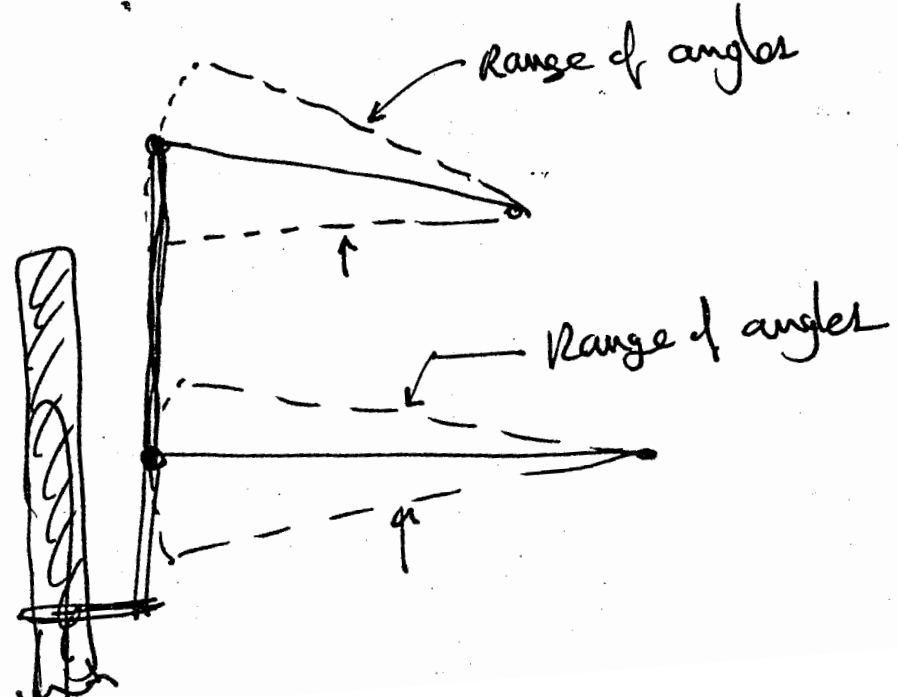 Range of angles
Range of angles